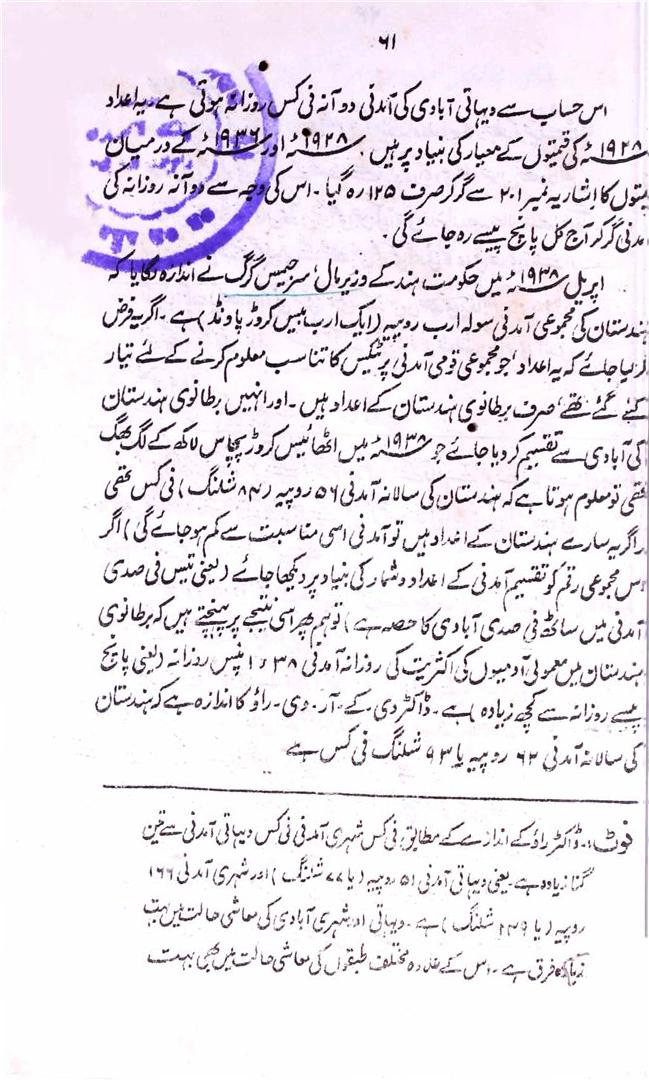 ۶۱
اس حساب سے دیہاتی آبادی کی آمدنی دو آنہ فی کس روزانہ ہوتی ہے۔ یہ اعداد
۱۹۲۸ء کی قیمتوں کے معیار کی بنیاد پر ہیں۔ ۱۹۲۸ء اور ۱۹۳۶ء کے درمیان
کا اشاریہ نمبر ۲۰۱ سے گر کر صرف ۱۲۵ رہ گیا۔ اس کی وجہ سے دو آنہ روزانہ کی
آمدنی گر کر آج کل پانچ پیسے رہ جائے گی۔
اپریل ۱۹۳۸ء میں حکومت ہند کے وزیر مال، سر جیمس گرگ نے اندازہ لگایا کہ
ہندستان کی مجموعی آمدنی سولہ ارب روپیہ (ایک ارب بیس کروڑ پاونڈ) ہے۔ اگر یہ فرض
کر لیا جائے کہ یہ اعداد، جو مجموعی قومی آمدنی پر ٹیکس کا تناسب معلوم کرنے کے لئے تیار
کئے گئے تھے، صرف برطانوی ہندستان کے اعداد ہیں۔ اور انہیں برطانوی ہندستان
کی آبادی سے تقسیم کر دیا جائے جو ۱۹۳۸ء میں اٹھائیس کروڑ پچاس لاکھ کے لگ بھگ
تھی تو معلوم ہوتا ہے کہ ہندستان کی سالانہ آمدنی ۵۶ روپیہ (۸۴ شلنگ) فی کس تھی
(اگر یہ سارے ہندستان کے اعداد ہیں تو آمدنی اسی مناسبت سے کم ہو جائے گی) اگر
اس مجموعی رقم کو تقسیم آمدنی کے اعداد و شمار کی بنیاد پر دیکھا جائے (یعنی تیس فی صدی
آمدنی میں ساٹھ فی صدی آبادی کا حصہ ہے) تو ہم پھر اسی نتیجے پر پہنچتے ہیں کہ برطانوی
ہندستان میں معمولی آدمیوں کی اکثریت کی روزانہ آمدنی ۳۸ء۱ پنس روزانہ (یعنی پانچ
پیسے روزانہ سے کچھ زیادہ) ہے۔ ڈاکٹر وی۔ کے۔ آر۔ وی۔ راؤ کا اندازہ ہے کہ ہندستان
کی سالانہ آمدنی ۶۲ روپیہ یا ۹۳ شلنگ فی کس ہے
نوٹ:۔ ڈاکٹر راؤ کے اندازے کے مطابق، فی کس شہری آمدنی فی کس دیہاتی آمدنی سے تین
گنا زیادہ ہے۔ یعنی دیہاتی آمدنی ۵۱ روپیہ (یا ۷۷ شلنگ) اور شہری آمدنی ۱۶۶
روپیہ (یا ۲۴۹ شلنگ) ہے۔ دیہاتی اور شہری آبادی کی معاشی حالت میں بہت
زیادہ فرق ہے۔ اس کے علاوہ مختلف طبقوں کی معاشی حالت میں بھی بہت